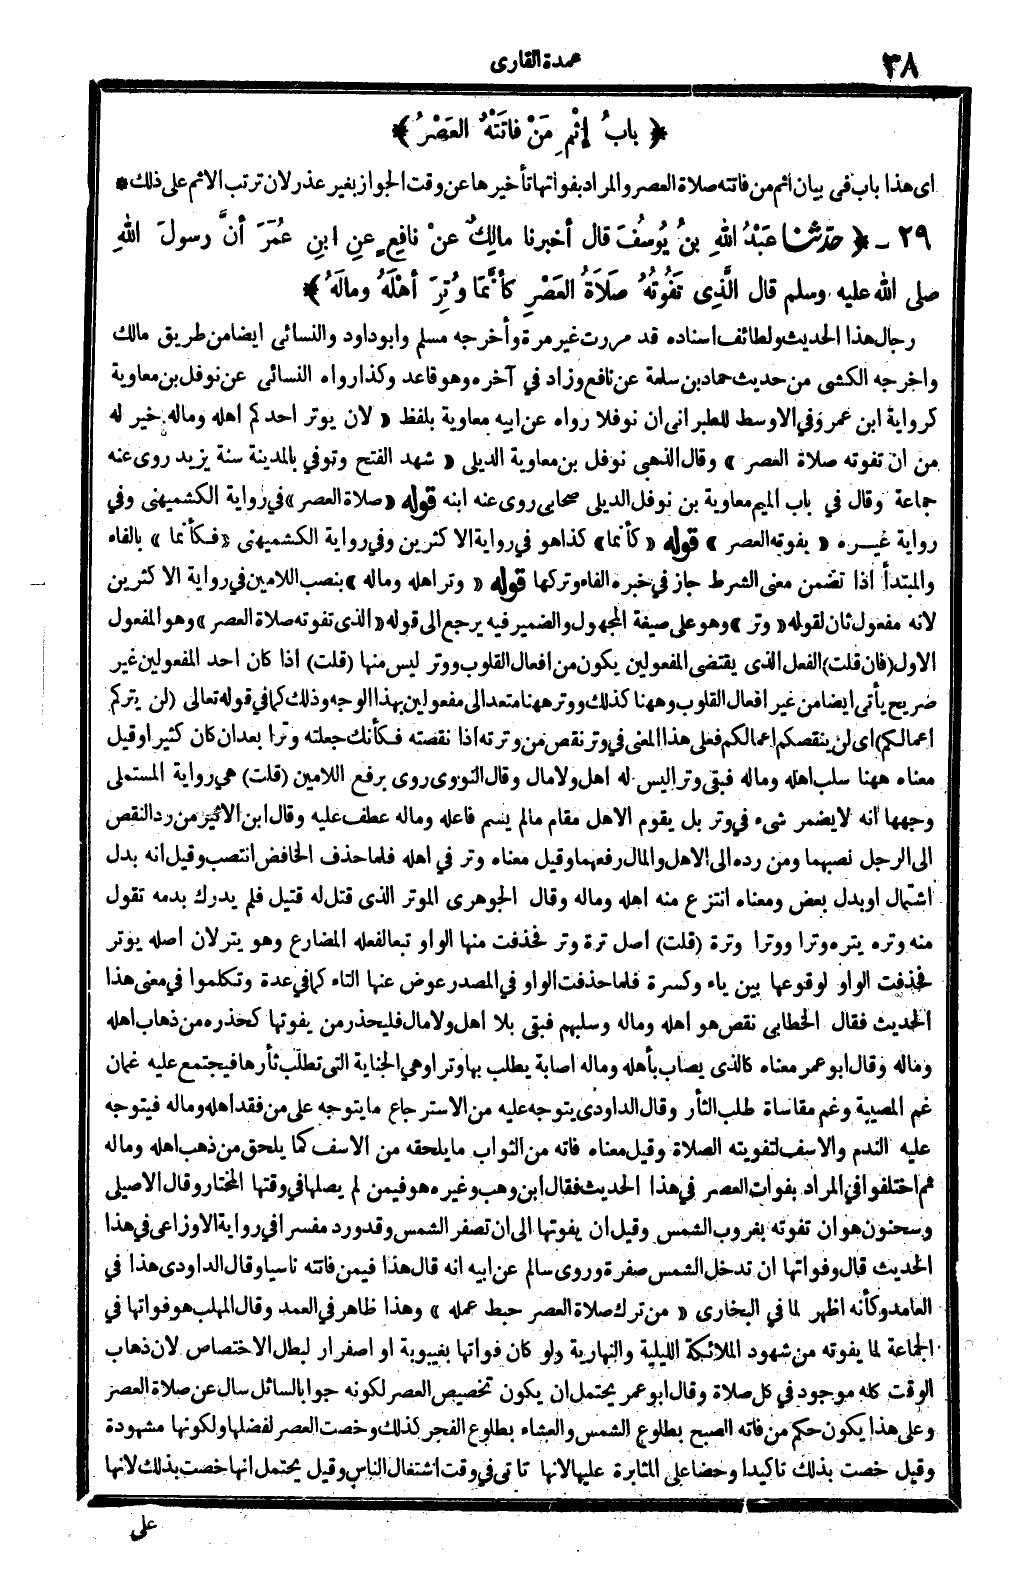 ٣٨
عمدة القارى
﴿ بابُ إِثْمِ مَنْ فاتَتْهُ العَصْرُ ﴾
اى هذا باب فى بيان اثم من فاتته صلاة العصر والمراد بفواتها تأخيرها عن وقت الجواز بغير عذر لان ترتب الاثم على ذلك *
٢٩ - ﴿ حدّثنا عَبْدُ اللهِ بنُ يُوسُفَ قال أخبرنا مالِكٌ عنْ نافِعٍ عنِ ابنِ عُمَرَ أنَّ رسولَ اللهِ
صلى الله عليه وسلم قال الَّذِى تَفُوتُهُ صَلاَةُ العَصْرِ كأنَّمَا وُتِرَ أهْلَهُ ومالَهُ ﴾
رجال هذا الحديث ولطائف اسناده قد مررت غير مرة وأخرجه مسلم وابو داود والنسائى ايضا من طريق مالك
واخرجه الكشى من حديث حماد بن سلمة عن نافع وزاد في آخره وهو قاعد وكذا رواه النسائى عن نوفل بن معاوية
كرواية ابن عمر وفي الاوسط للطبرانى ان نوفلا رواه عن ابيه معاوية بلفظ « لان يوتر احدكم اهله وماله خير له
من ان تفوته صلاة العصر » وقال الذهبى نوفل بن معاوية الديلى « شهد الفتح وتوفي بالمدينة سنة يزيد روى عنه
جماعة وقال في باب الميم معاوية بن نوفل الديلى صحابى روى عنه ابنه قوله « صلاة العصر » في رواية الكشميهنى وفي
رواية غيره « يفوته العصر » قوله « كأنما » كذا هو في رواية الاكثرين وفي رواية الكشميهنى « فكأنما » بالفاء
والمبتدأ اذا تضمن معنى الشرط جاز في خبره الفاء وتركها قوله « وتر اهله وماله » بنصب اللامين في رواية الاكثرين
لانه مفعول ثان لقوله « وتر » وهو على صيغة المجهول والضمير فيه يرجع الى قوله « الذى تفوته صلاة العصر » وهو المفعول
الاول (فان قلت) الفعل الذى يقتضى المفعولين يكون من افعال القلوب ووتر ليس منها (قلت) اذا كان احد المفعولين غير
صريح يأتى ايضا من غير افعال القلوب وههنا كذلك ووتر ههنا متعد الى مفعولين بهذا الوجه وذلك كما في قوله تعالى (لن يتركم
اعمالكم) اى لن ينقصكم اعمالكم فعلى هذا المعنى في وتر نقص من وترته اذا نقصته فكأنك جعلته وترا بعد ان كان كثيرا وقيل
معناه ههنا سلب اهله وماله فبقى وترا ليس له اهل ولا مال وقال النووى روى برفع اللامين (قلت) هي رواية المستملى
وجهها انه لا يضمر شىء في وتر بل يقوم الاهل مقام مالم يسم فاعله وماله عطف عليه وقال ابن الاثير من رد النقص
الى الرجل نصبهما ومن رده الى الاهل والمال رفعهما وقيل معناه وتر في اهله فلما حذف الخافض انتصب وقيل انه بدل
اشتمال او بدل بعض ومعناه انتزع منه اهله وماله وقال الجوهرى الموتر الذى قتل له قتيل فلم يدرك بدمه تقول
منه وتره يتره وترا ووترا وترة (قلت) اصل ترة وتر فحذفت منها الواو تبعا لفعله المضارع وهو يتر لان اصله يوتر
فحذفت الواو لوقوعها بين ياء وكسرة فلما حذفت الواو في المصدر عوض عنها التاء كما في عدة وتكلموا في معنى هذا
الحديث فقال الخطابى نقص هو اهله وماله وسلبهم فبقى بلا اهل ولا مال فليحذر من يفوتها كحذره من ذهاب اهله
وماله وقال ابو عمر معناه كالذى يصاب بأهله وماله اصابة يطلب بها وترا وهي الجناية التى تطلب ثأرها فيجتمع عليه غمان
غم المصيبة وغم مقاساة طلب الثأر وقال الداودى يتوجه عليه من الاسترجاع ما يتوجه على من فقد اهله وماله فيتوجه
عليه الندم والاسف لتفويته الصلاة وقيل معناه فاته من الثواب ما يلحقه من الاسف كما يلحق من ذهب اهله وماله
ثم اختلفوا في المراد بفوات العصر في هذا الحديث فقال ابن وهب وغيره هو فيمن لم يصلها في وقتها المختار وقال الاصيلى
وسحنون هو ان تفوته بغروب الشمس وقيل ان يفوتها الى ان تصفر الشمس وقد ورد مفسرا في رواية الاوزاعى في هذا
الحديث قال وفواتها ان تدخل الشمس صفرة وروى سالم عن ابيه انه قال هذا فيمن فاتته ناسيا وقال الداودى هذا في
العامد وكأنه اظهر لما في البخارى « من ترك صلاة العصر حبط عمله » وهذا ظاهر في العمد وقال المهلب هو فواتها في
الجماعة لما يفوته من شهود الملائكة الليلية والنهارية ولو كان فواتها بغيبوبة او اصفرار لبطل الاختصاص لان ذهاب
الوقت كله موجود في كل صلاة وقال ابو عمر يحتمل ان يكون تخصيص العصر لكونه جوابا لسائل سال عن صلاة العصر
وعلى هذا يكون حكم من فاته الصبح بطلوع الشمس والعشاء بطلوع الفجر كذلك وخصت العصر لفضلها ولكونها مشهودة
وقيل خصت بذلك تاكيدا وحضا على المثابرة عليها لانها تاتى في وقت اشتغال الناس وقيل يحتمل انها خصت بذلك لانها
على